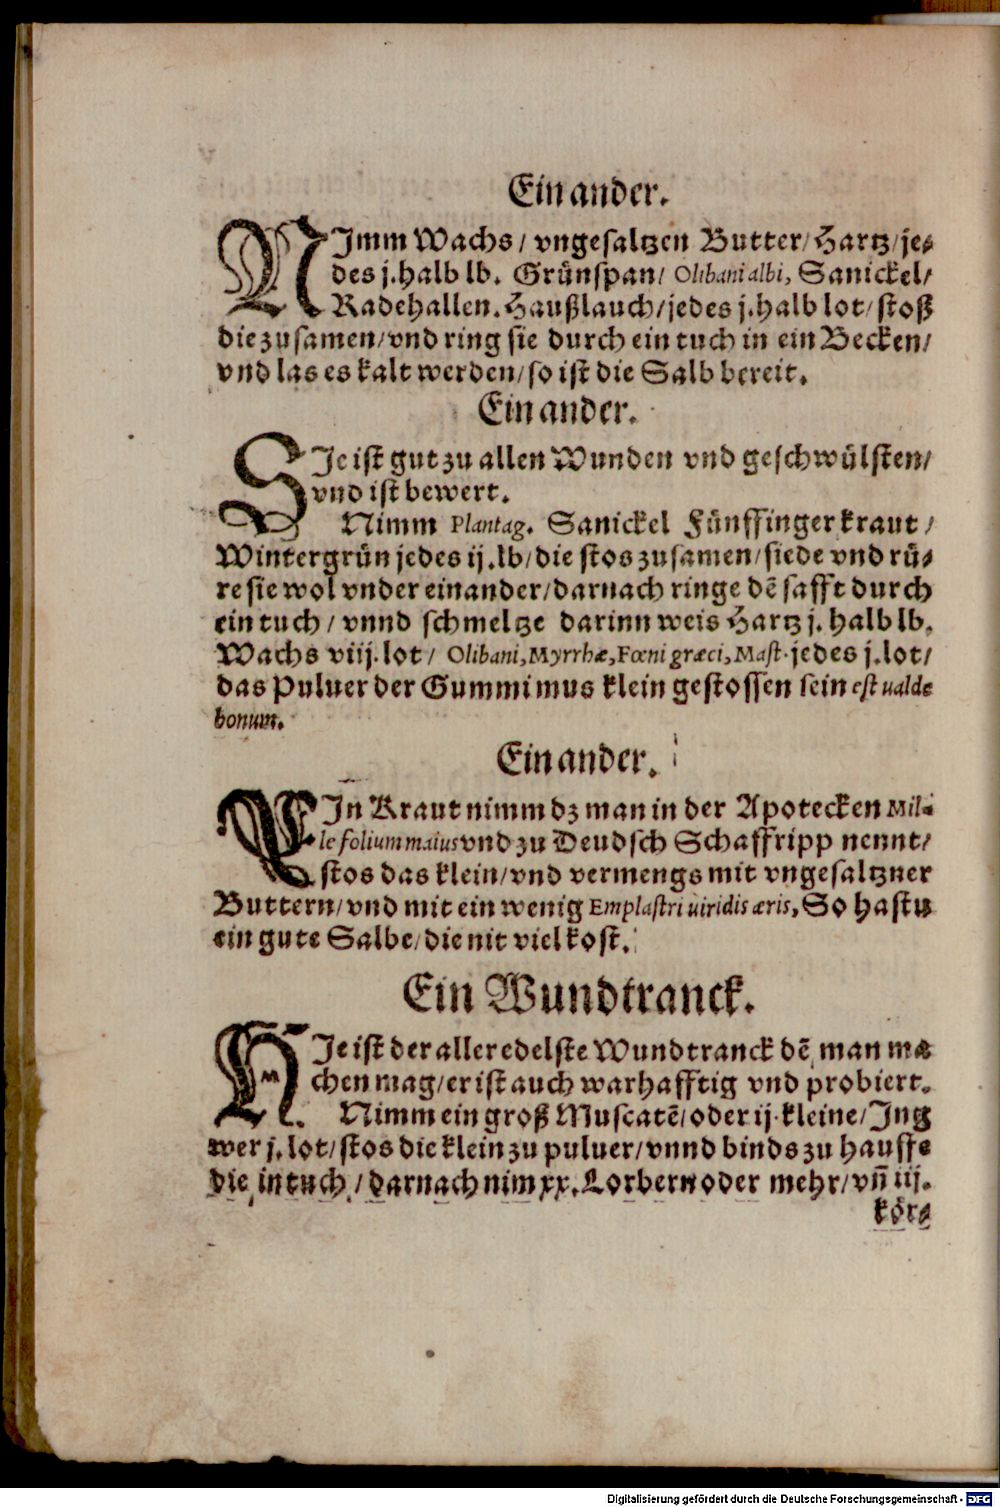 Ein ander.
NImm Wachs / vngesaltzen Butter / Hartz / je⸗
des j. halb lb. Grünspan / Olibani albi, Sanickel /
Radehallen. Haußlauch / jedes j. halb lot / stoß
die zusamen / vnd ring sie durch ein tuch in ein Becken /
vnd las es kalt werden / so ist die Salb bereit.
Ein ander.
SIe ist gut zu allen Wunden vnd geschwülsten /
vnd ist bewert.
Nimm Plantag. Sanickel Fünffingerkraut /
Wintergrün jedes ij. lb / die stos zusamen / siede vnd rü⸗
re sie wol vnder einander / darnach ringe dē safft durch
ein tuch / vnnd schmeltze darinn weis Hartz j. halb lb.
Wachs viij. lot / Olibani, Myrrhæ, Fœni græci, Mast. jedes j. lot /
das Puluer der Gummi mus klein gestossen sein est ualde
bonum.
Ein ander.
EIn Kraut nimm dz man in der Apotecken Mil⸗
le folium maius vnd zu Deudsch Schaffripp nennt /
stos das klein / vnd vermengs mit vngesaltzner
Buttern / vnd mit ein wenig Emplastri uiridis æris, So hastu
ein gute Salbe / die nit viel kost.
Ein Wundtranck.
HIe ist der aller edelste Wundtranck dē man ma
chen mag / er ist auch warhafftig vnd probiert.
Nimm ein groß Muscatē / oder ij. kleine / Jng
wer j. lot / stos die klein zu puluer / vnnd binds zu hauffe
die in tuch / darnach nim xx. Lorbern oder mehr / vn̄ iij.
kör⸗
Digitalisierung gefördert durch die Deutsche Forschungsgemeinschaft - DFG